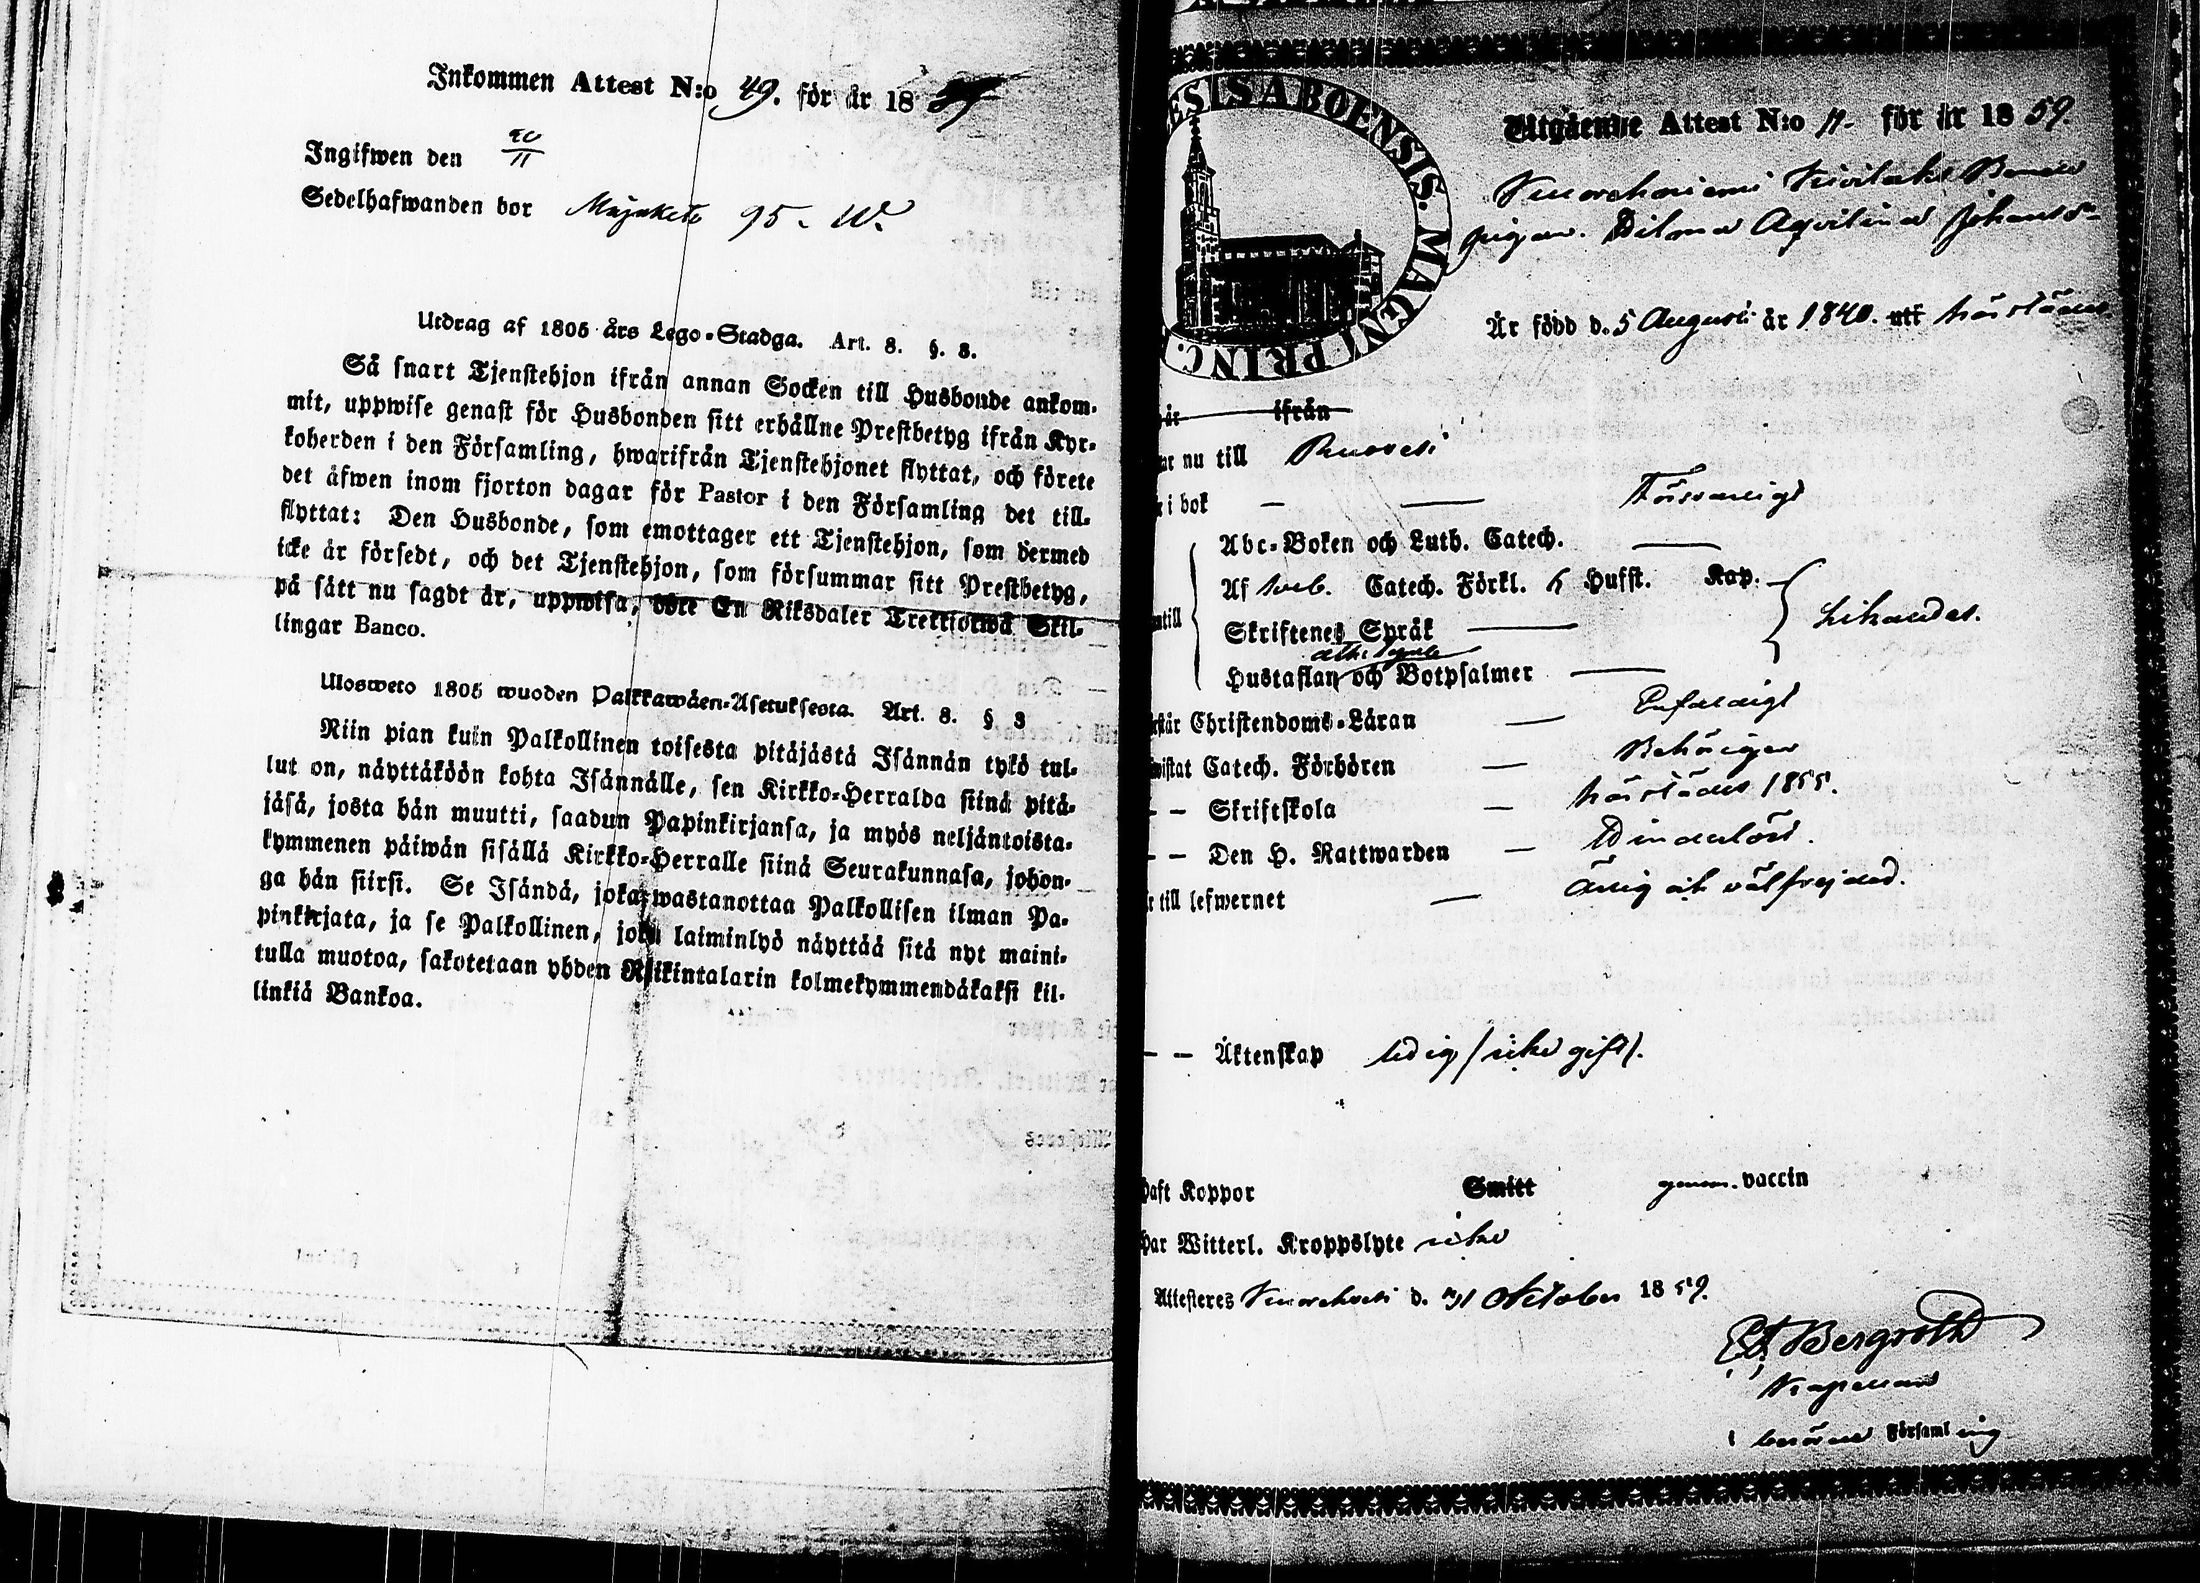 Inkommen Attest N:o 49. för år 1859
Ingifwen den 20/11
Sedelhafwanden bor 95. W.
Utdrag af 1805 års Lego-Stadga. Art. 8. §. 3.
Så snart Tjenstehjon ifrån annan Socken till Husbonde ankom-
mit, uppwise genast för Husbonden sitt erhållne Prestbetyg ifrån Kyr-
koherden i den Församling, hwarifrån Tjenstehjonet flyttat, och förete
det äfwen inom fjorton dagar för Pastor i den Församling det till-
flyttat: Den Husbonde, som emottager ett Tjenstehjon, som dermed
icke är försedt, och det Tjenstehjon, som försummar sitt Prestbetyg,
på sätt nu sagdt är, uppwisa, böte En Riksdaler Trettiotwå Skil-
lingar Banco.
Ulosweto 1805 wuoden Palkkawäen-Asetuksesta. Art. 8. § 3
Niin pian kuin Palkollinen toisesta pitäjästä Isännän tykö tul-
lut on, näyttäköön kohta Isännälle, sen Kirkko-Herralda siinä pitä-
jäsä, josta hän muutti, saadun Papinkirjansa, ja myös neljäntoista-
kymmenen päiwän sisällä Kirkko-Herralle siinä Seurakunnasa, johon-
ga hän siirsi. Se Isändä, joka wastanottaa Palkollisen ilman Pa-
pinkirjata, ja se Palkollinen, joka laiminlyö näyttää sitä nyt maini-
tulla muotoa, sakotetaan yhden Riikintalarin kolmekymmendäkaksi kil-
linkiä Bankoa.
ESIS ABOENSIS. MAGNI PRINC.
Utgående Attest N:o 11. för år 1859
pigan. Wilma Aqvilina Johans dr
Är född d. 5 Augusti år 1840. uti härstädes
år ifrån
nu till Ruovesi
i bok — — Försvarligt
Abc-Boken och Luth. Catech. —
Af Sveb. Catech. Förkl. 5 Hufst. Kap. —
ntill Skriftenes Språk — Lihandes.
Hustaflan och Botpsalmer —
rstår Christendoms-Läran — Enfaldigt
wistat Catech. Förhören — Behörigen
— — Skriftskola — härstädes 1855.
— — Den H. Nattwarden — Oindelöst.
r till lefwernet — Ärlig och välfrejdad.
— — Äktenskap ledig /icke gift/.
haft Koppor Smitt genom. vaccin
Har Witterl. Kroppslyte icke
Attesteres Kuorehvesi d. 31 Oktober 1859.
Bergroth
Kapellan
i berörde Församling